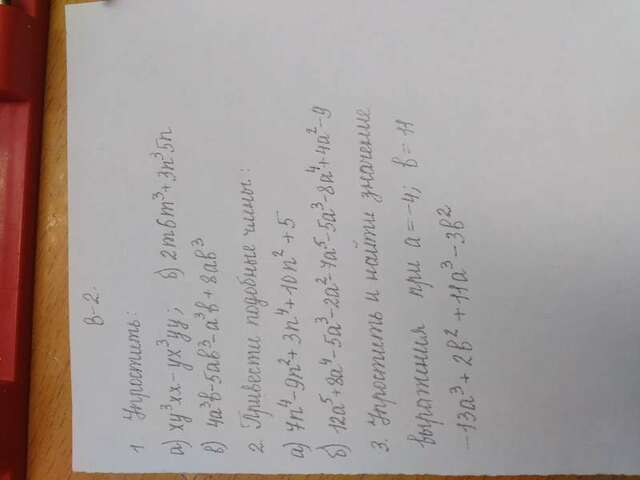 В-2.
1. Упростить:
а) xy³xx-yx³yy; б) 2m6m³+3n³5n
в) 4a³b-5ab³-a³b+8ab³
2. Привести подобные члены:
а) 7n⁴-9n²+3n⁴+10n²+5
б) 12a⁵+8a⁴-5a³-2a²-7a⁵-5a³-8a⁴+4a²-9
3. Упростить и найти значение
выражения при a=-4; b=11
-13a³+2b²+11a³-3b²